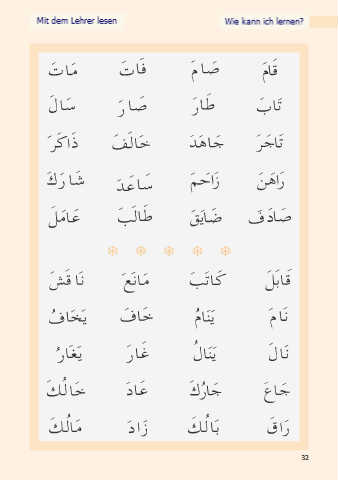 Mit dem Lehrer lesen Wie kann ich lernen?
قَامَ صَامَ فَاتَ مَاتَ
تَابَ طَارَ صَارَ سَالَ
تَاجَرَ جَاهَدَ خَالَفَ ذَاكَرَ
رَاهَنَ زَاحَمَ سَاعَدَ شَارَكَ
صَادَفَ ضَايَقَ طَالَبَ عَامَلَ
قَابَلَ كَاتَبَ مَانَعَ نَاقَشَ
نَامَ يَنَامُ خَافَ يَخَافُ
نَالَ يَنَالُ غَارَ يَغَارُ
جَاعَ جَارُكَ عَادَ خَالُكَ
رَاقَ بَالُكَ زَادَ مَالُكَ
32